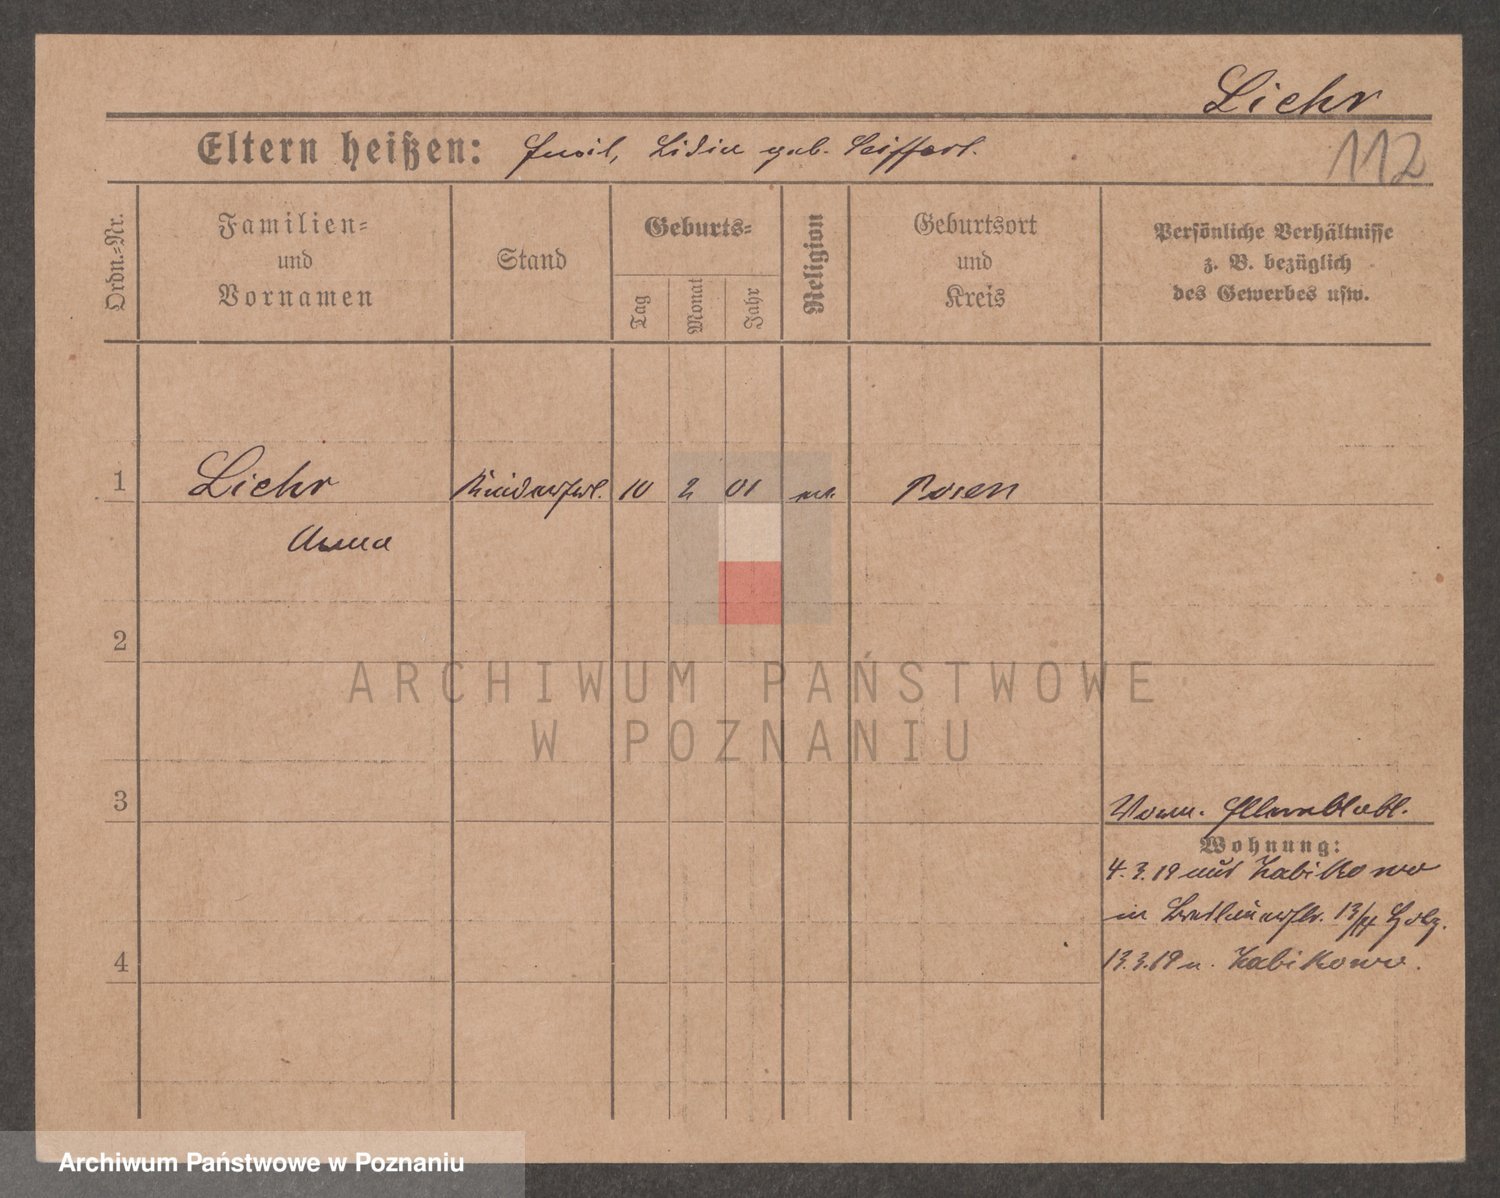 Liehr
112
Eltern heißen: Emil, Lidia geb. Seiffert.
Ordn.-Nr.
Familien-
und
Vornamen
Stand
Geburts-
Tag
Monat
Jahr
Religion
Geburtsort
und
Kreis
Persönliche Verhältnisse
z. B. bezüglich
des Gewerbes usw.
1
Liehr
Kinderfrl.
10
2
01
ev.
Posen
Anna
2
ARCHIWUM PAŃSTWOWE
W POZNANIU
3
Wohnung:
4.3.19 aus Zabikowo
in Breslauerstr. 13/II
4
13.3.19 n. Zabikowo.
Archiwum Państwowe w Poznaniu